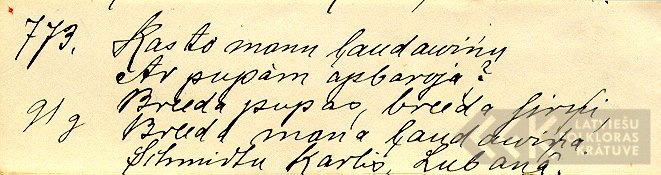 773. Kas to manu ļaudawiņu
Ar pupàm apbaroja?
919 Breeda pupas, breeda sirņi,
Breeda mana ļaudawiņa.
Schmidtu Karlis, Lubanā.
LATVIEŠU
FOLKLORAS
KRĀTUVE